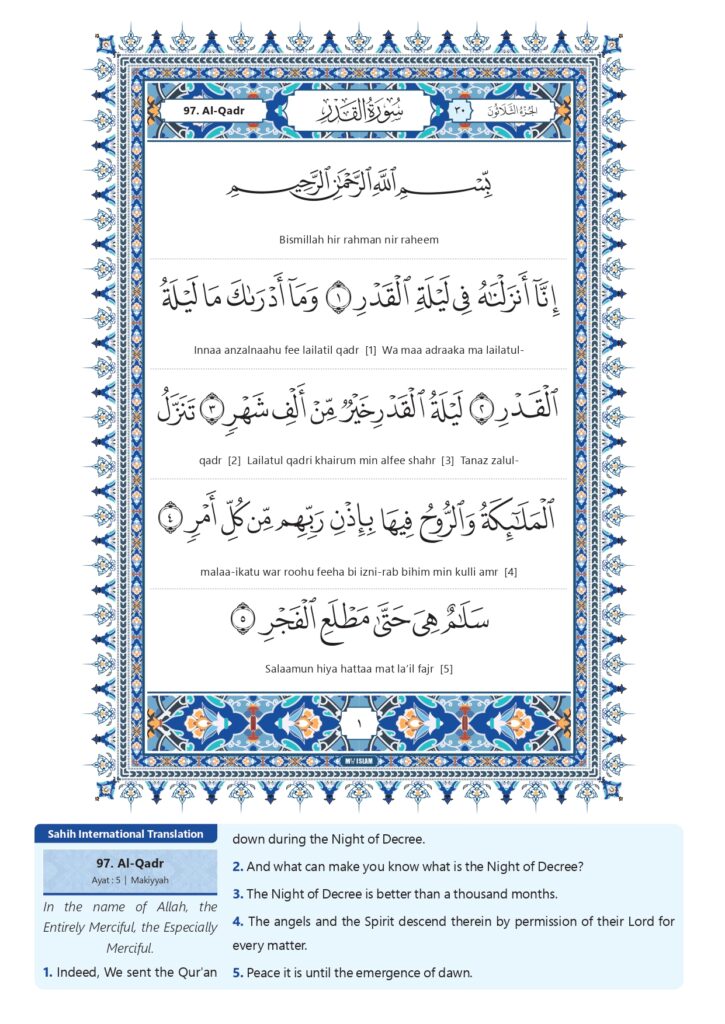 97. Al-Qadr
سُورَةُ القَدْرِ
٣٠
الجُزءُ الثَّلَاثُونَ
بِّسْمِ ٱللَّهِ ٱلرَّحْمَٰنِ ٱلرَّحِيمِ
Bismillah hir rahman nir raheem
إِنَّآ أَنزَلْنَٰهُ فِى لَيْلَةِ ٱلْقَدْرِ ١ وَمَآ أَدْرَىٰكَ مَا لَيْلَةُ
Innaa anzalnaahu fee lailatil qadr [1] Wa maa adraaka ma lailatul-
ٱلْقَدْرِ ٢ لَيْلَةُ ٱلْقَدْرِ خَيْرٌ مِّنْ أَلْفِ شَهْرٍ ٣ تَنَزَّلُ
qadr [2] Lailatul qadri khairum min alfee shahr [3] Tanaz zalul-
ٱلْمَلَٰٓئِكَةُ وَٱلرُّوحُ فِيهَا بِإِذْنِ رَبِّهِم مِّن كُلِّ أَمْرٍ ٤
malaa-ikatu war roohu feeha bi izni-rab bihim min kulli amr [4]
سَلَٰمٌ هِىَ حَتَّىٰ مَطْلَعِ ٱلْفَجْرِ ٥
Salaamun hiya hattaa mat la'il fajr [5]
١
MY ISLAM
Sahih International Translation
97. Al-Qadr
Ayat : 5 | Makiyyah
In the name of Allah, the
Entirely Merciful, the Especially
Merciful.
1. Indeed, We sent the Qur'an
down during the Night of Decree.
2. And what can make you know what is the Night of Decree?
3. The Night of Decree is better than a thousand months.
4. The angels and the Spirit descend therein by permission of their Lord for
every matter.
5. Peace it is until the emergence of dawn.